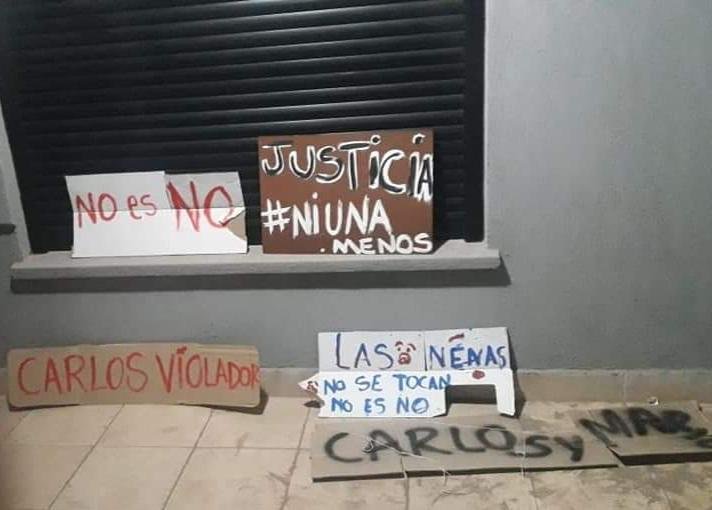 NO es NO
JUSTICIA
#NiUNA
.MENOS
CARLOS VIOLADOR
LAS NENAS
NO SE TOCAN
NO ES NO
CARLOS y